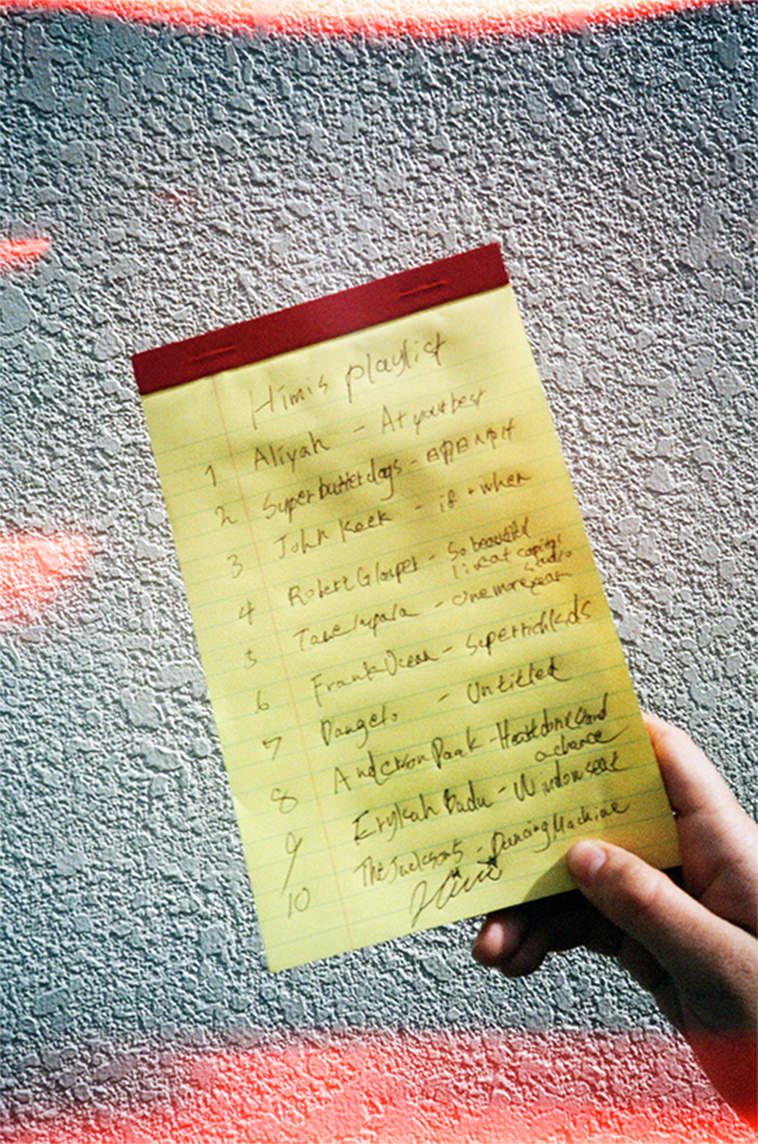 Himis playlist
1 Aliyah - At your best
2 Superbutterdogs -
3 John Keek - if + when
4 Robert Glasper - So beautiful
live at capitol
studio
5 Tame Impala - one more year
6 Frank Ocean - Super rich kids
7 Dangelo - Untitled
8 Anderson Paak - Heart don't stand
a chance
9 Erykah Badu - Window seat
10 The Jacksons - Dancing Machine